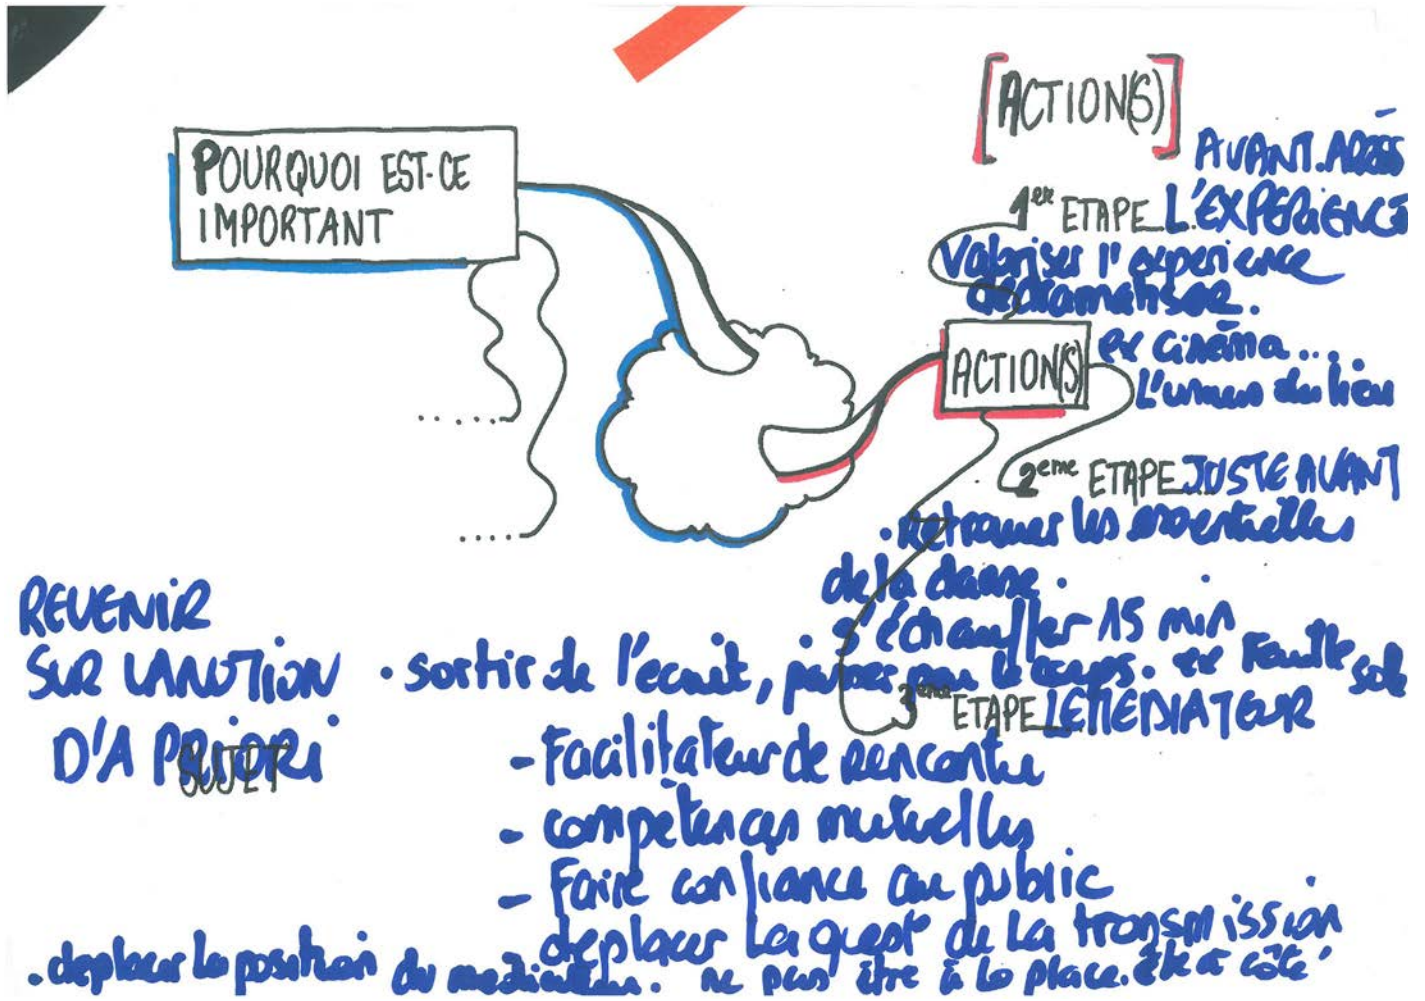 POURQUOI EST-CE
IMPORTANT
[ACTION(S)]
AVANT. APRÈS
1ère ETAPE L'EXPERIENCE
Valoriser l'experience
dedramatiser.
ACTION(S)
ex cinéma...
L'univers du lieu
2eme ETAPE JUSTE AVANT
. Retrouver les
de la danse.
s'échauffer 15 min
REVENIR
SUR LA NOTION
D'A PRIORI
SUJET
. sortir de l'écrit, passer par le corps. ex Feuille
3eme ETAPE LE MEDIATEUR
- Facilitateur de rencontre
- compétences mutuelles
- Faire confiance au public
deplacer la quest° de la transmission
. deplacer la position du mediateur. ne pas être à la place. être à côté